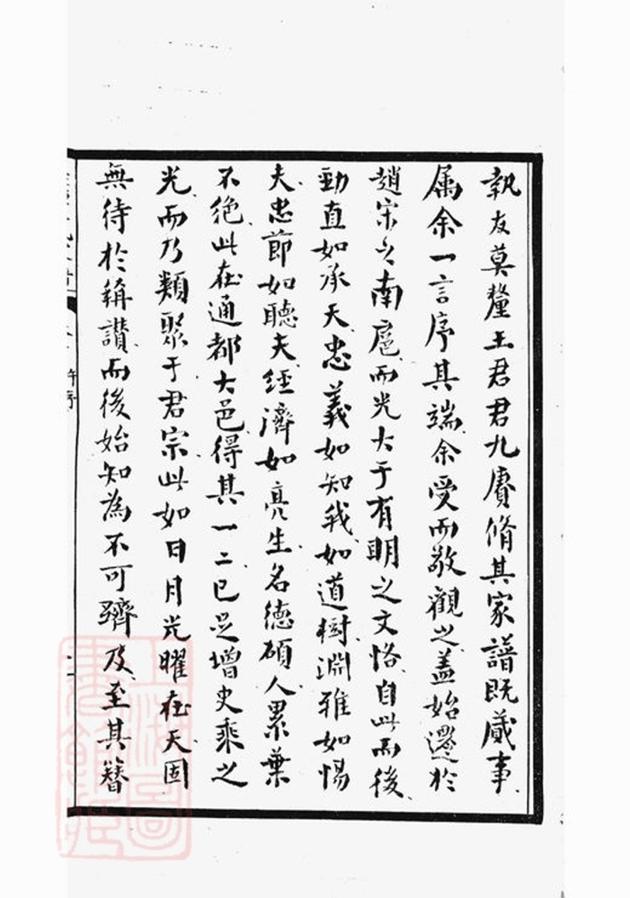 執友莫釐王君君九賡脩其家譜既蕆事
属余一言序其端余受而敬觀之蓋始遷於
趙宋之南扈而光大于有明之文恪自此而後
勁直如承天忠義如知我如道樹淵雅如惕
夫忠節如聽夫經濟如亮生名德碩人累葉
不絕此在通都大邑得其一二已足增史乘之
光而乃類聚于君宗此如日月光曜在天固
無待於稱讚而後始知為不可躋及至其簪
許序
上海圖書館藏